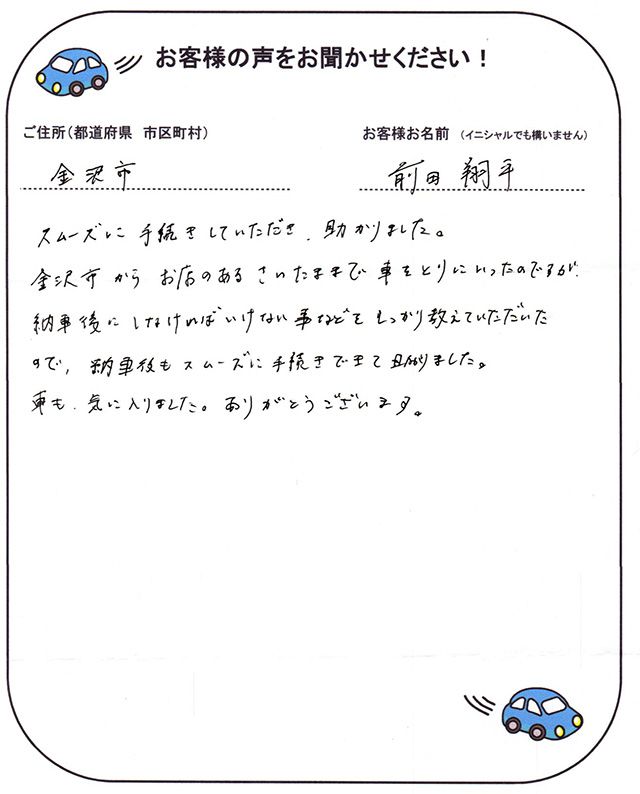 お客様の声をお聞かせください！
ご住所（都道府県　市区町村）
お客様お名前　（イニシャルでも構いません）
金沢市
前田 翔平
スムーズに手続きしていただき、助かりました。
金沢市からお店のあるさいたままで車をとりにいったのですが、
納車後にしなければいけない事などをしっかり教えていただいた
ので、納車後もスムーズに手続きできて助かりました。
車も、気に入りました。ありがとうございます。